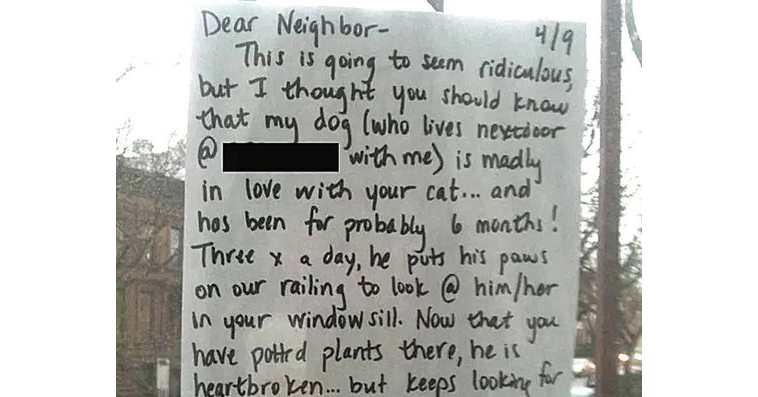 Dear Neighbor- 4/9
This is going to seem ridiculous,
but I thought you should know
that my dog (who lives nextdoor
@ with me) is madly
in love with your cat... and
has been for probably 6 months!
Three x a day, he puts his paws
on our railing to look @ him/her
in your windowsill. Now that you
have potted plants there, he is
heartbroken... but keeps looking for